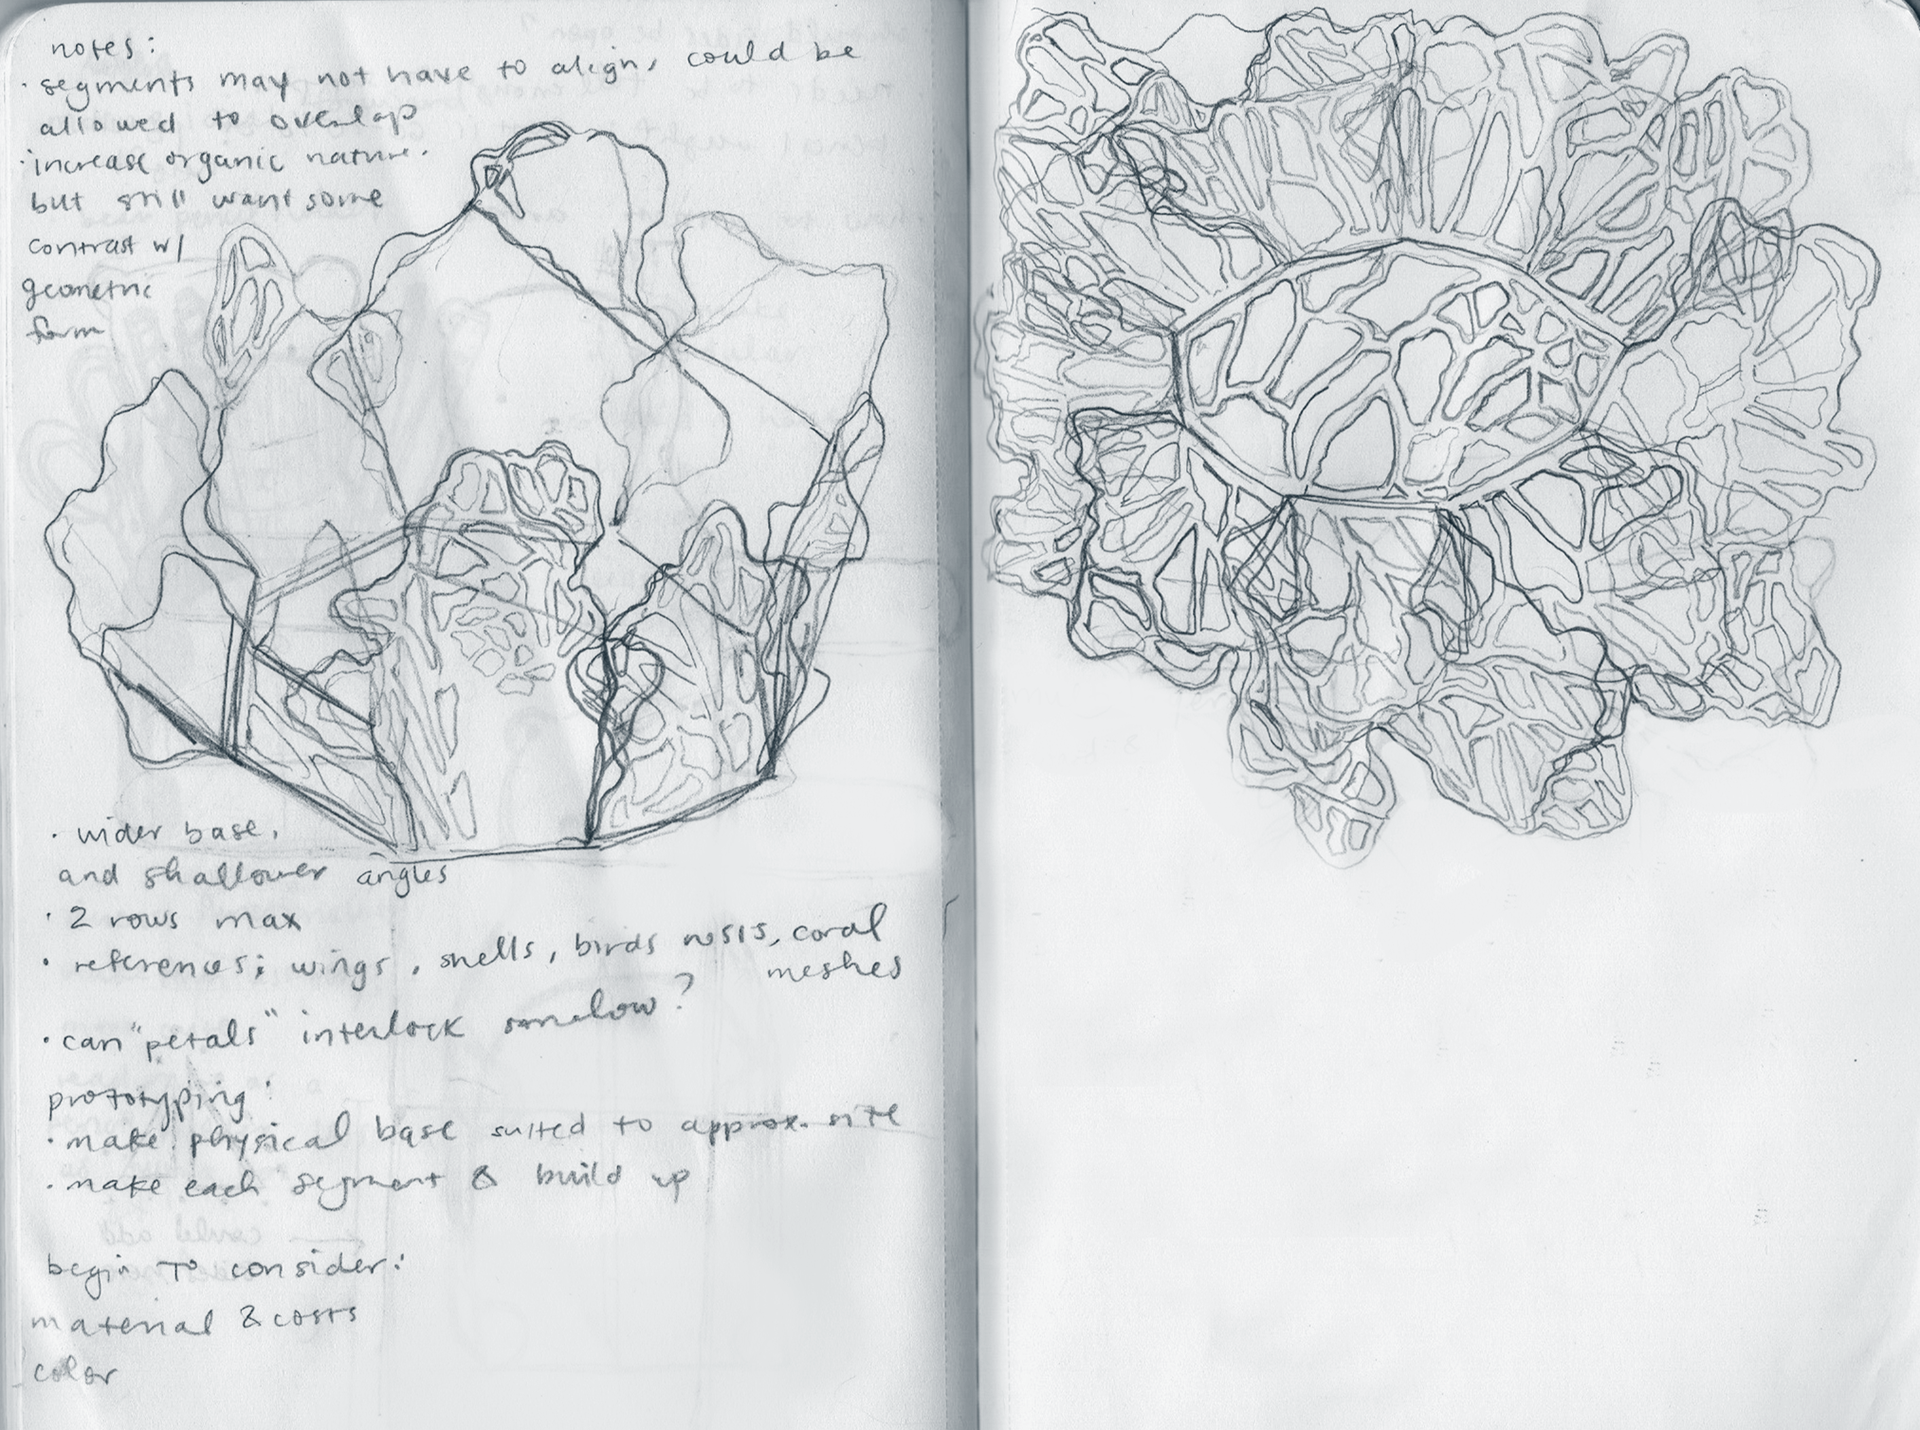 notes:
· segments may not have to align, could be
allowed to overlap
· increase organic nature.
but still want some
contrast w/
geometric
form
· wider base,
and shallower angles
· 2 rows max
· references; wings, shells, birds nests, coral
meshes
· can "petals" interlock somehow?
prototyping:
· make physical base suited to approx. site
· make each segment & build up
begin to consider:
material & costs
color